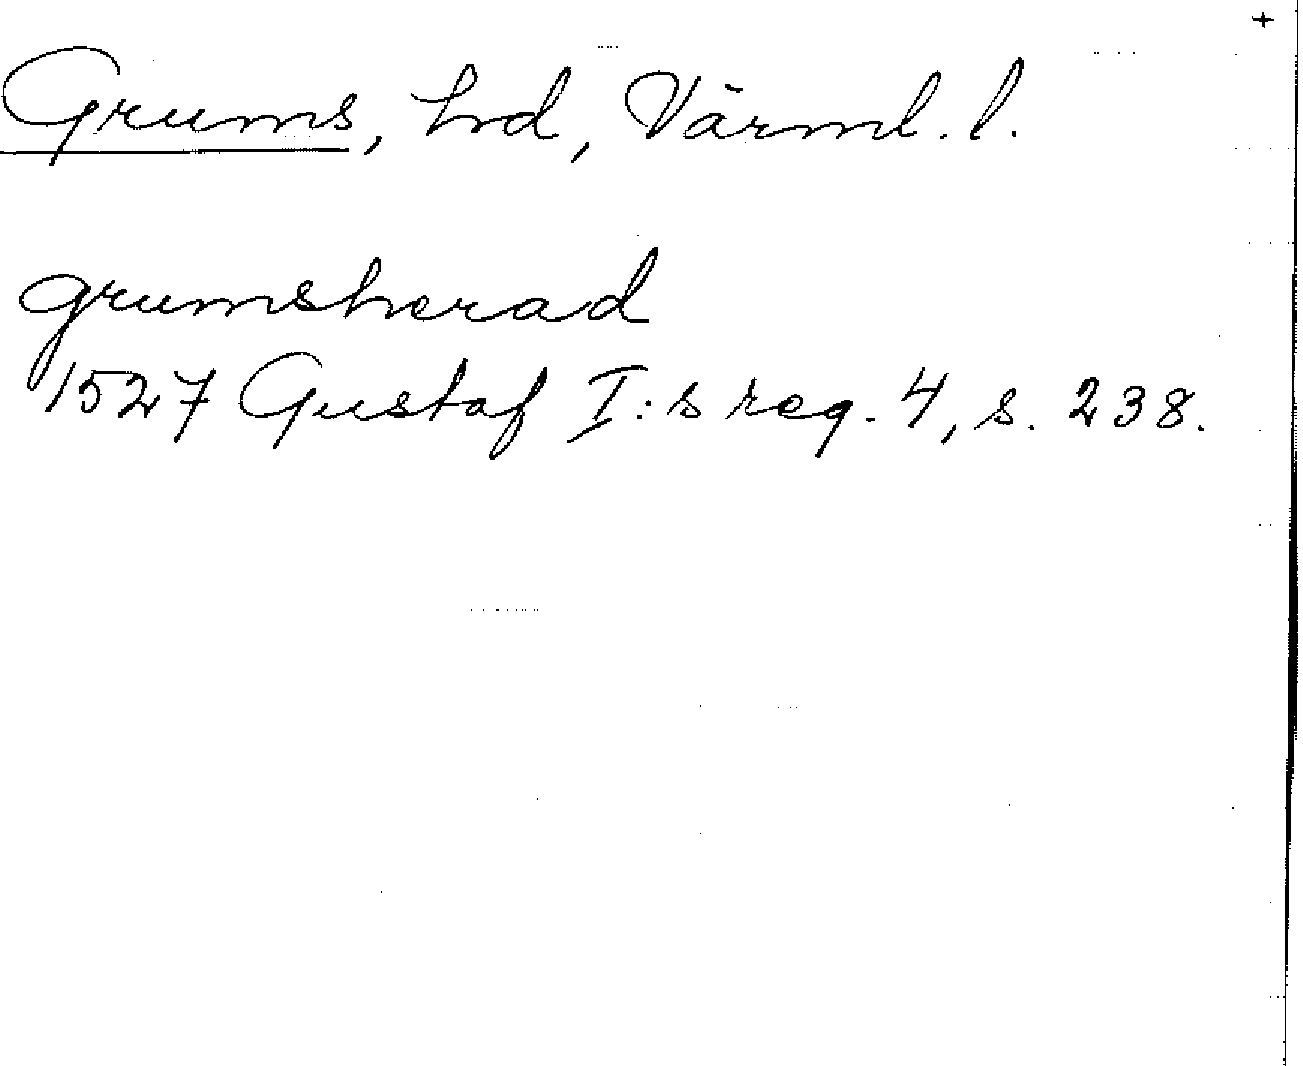 +
Grums, hd, Värml. l.
grumsherad
1527 Gustaf I:s reg. 4, s. 238.